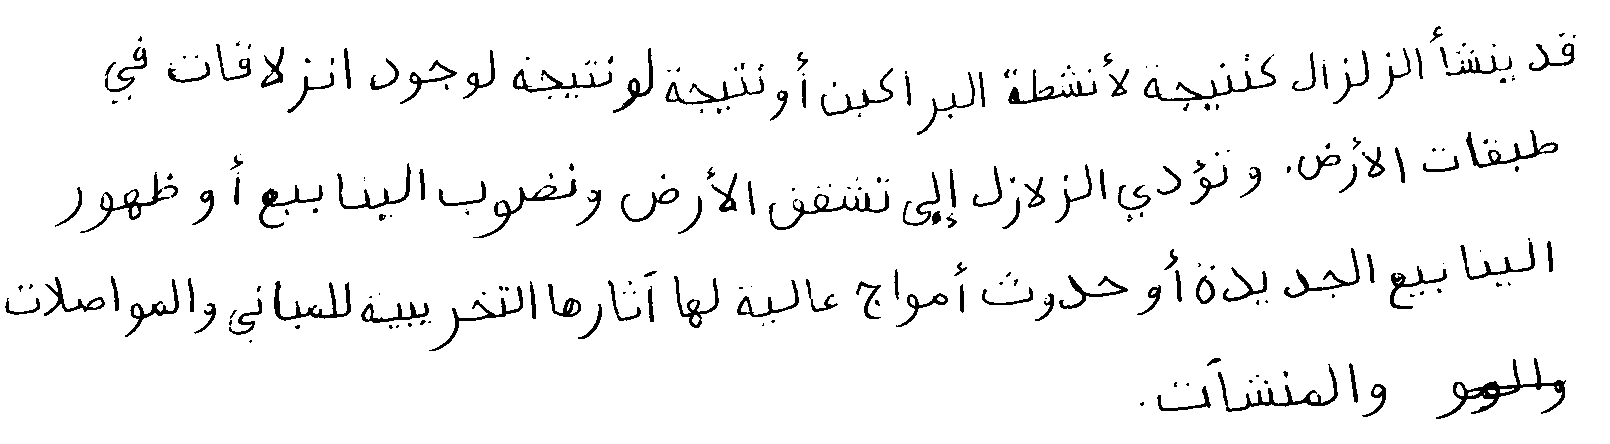 قد ينشأ الزلزال كنتيجة لأنشطة البراكين أو نتيجة لو نتيجة لوجود انزلاقات في
طبقات الأرض. وتؤدي الزلازل إلى تشقق الأرض ونضوب الينابيع أو ظهور
الينابيع الجديدة أو حدوث أمواج عالية لها آثارها التخريبية للمباني والمواصلات
والمنشآت.